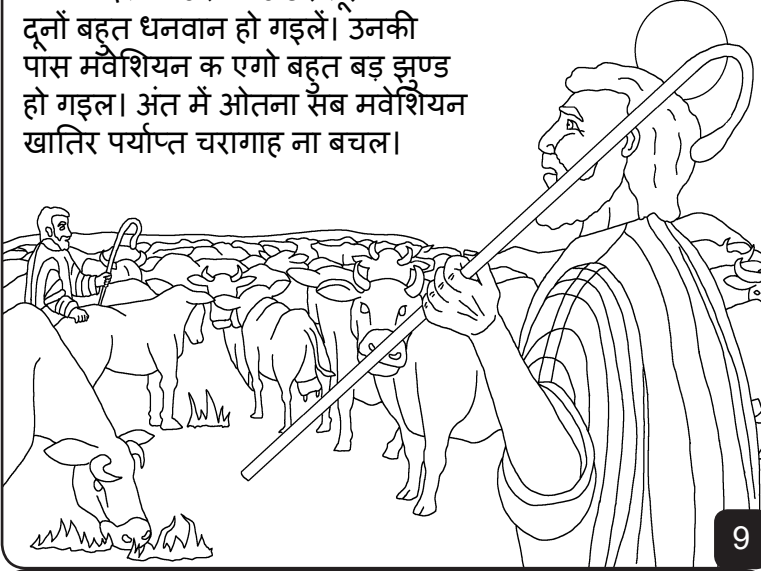 दूनों बहुत धनवान हो गइलें। उनकी
पास मवेशियन क एगो बहुत बड़ झुण्ड
हो गइल। अंत में ओतना सब मवेशियन
खातिर पर्याप्त चरागाह ना बचल।
9